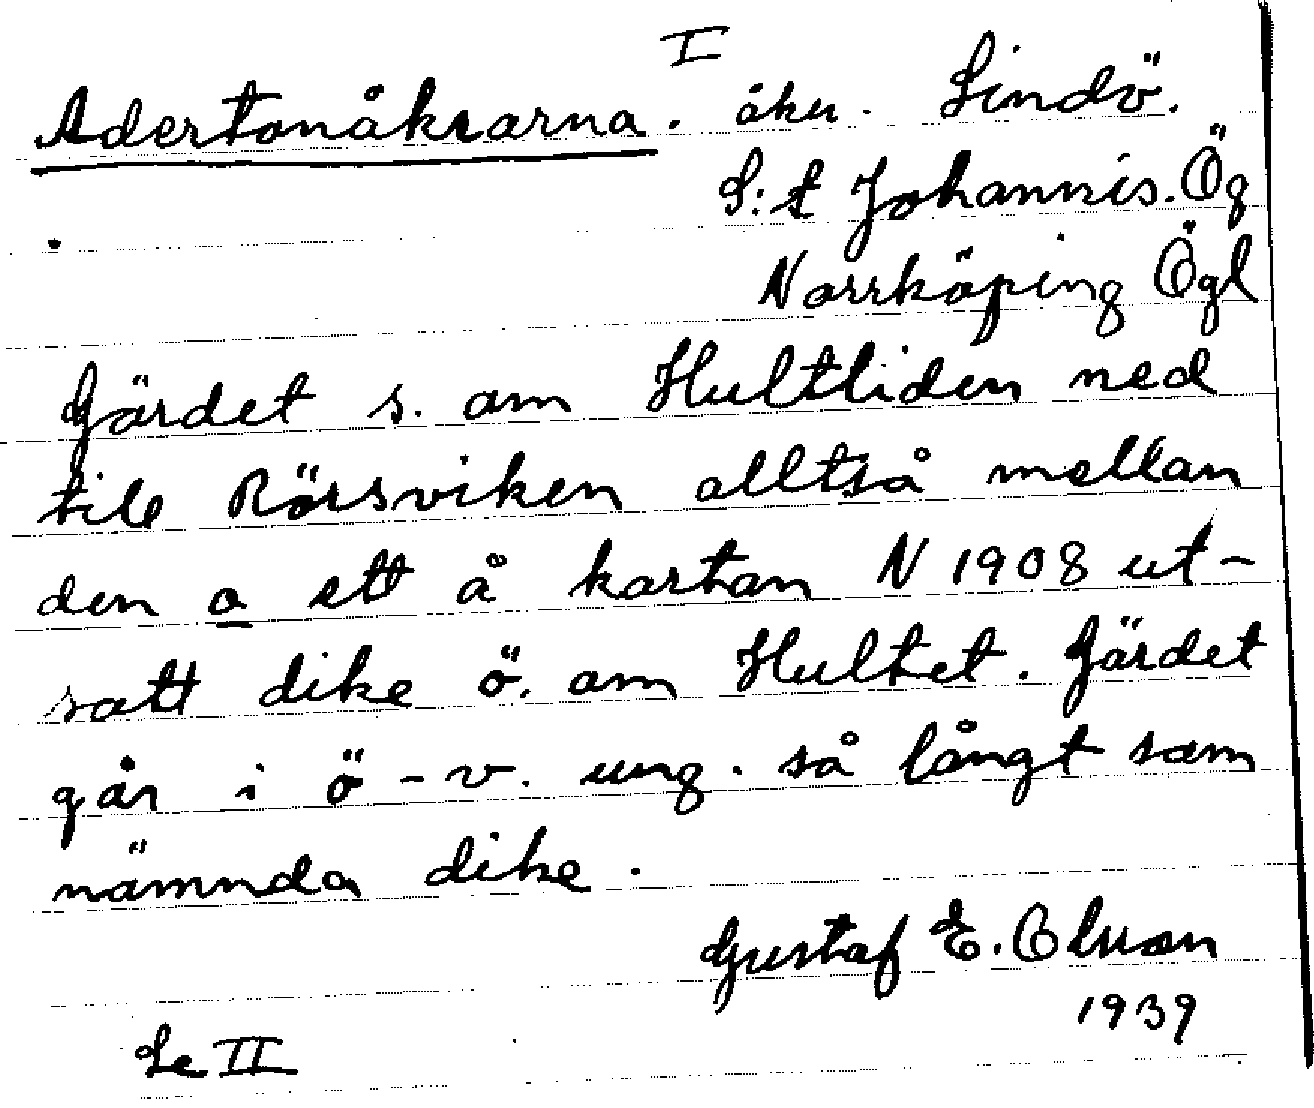 I
Adertonåkrarna. åkr. Lindö.
S:t Johannis. Ög
Norrköping Ögl
Gärdet s. om Hultliden ned
till Rörsviken alltså mellan
den o ett å kartan N 1908 ut-
satt dike ö. om Hultet. Gärdet
går i ö-v. ung. så långt som
nämnda dike.
Gustaf E.
1939
Se II